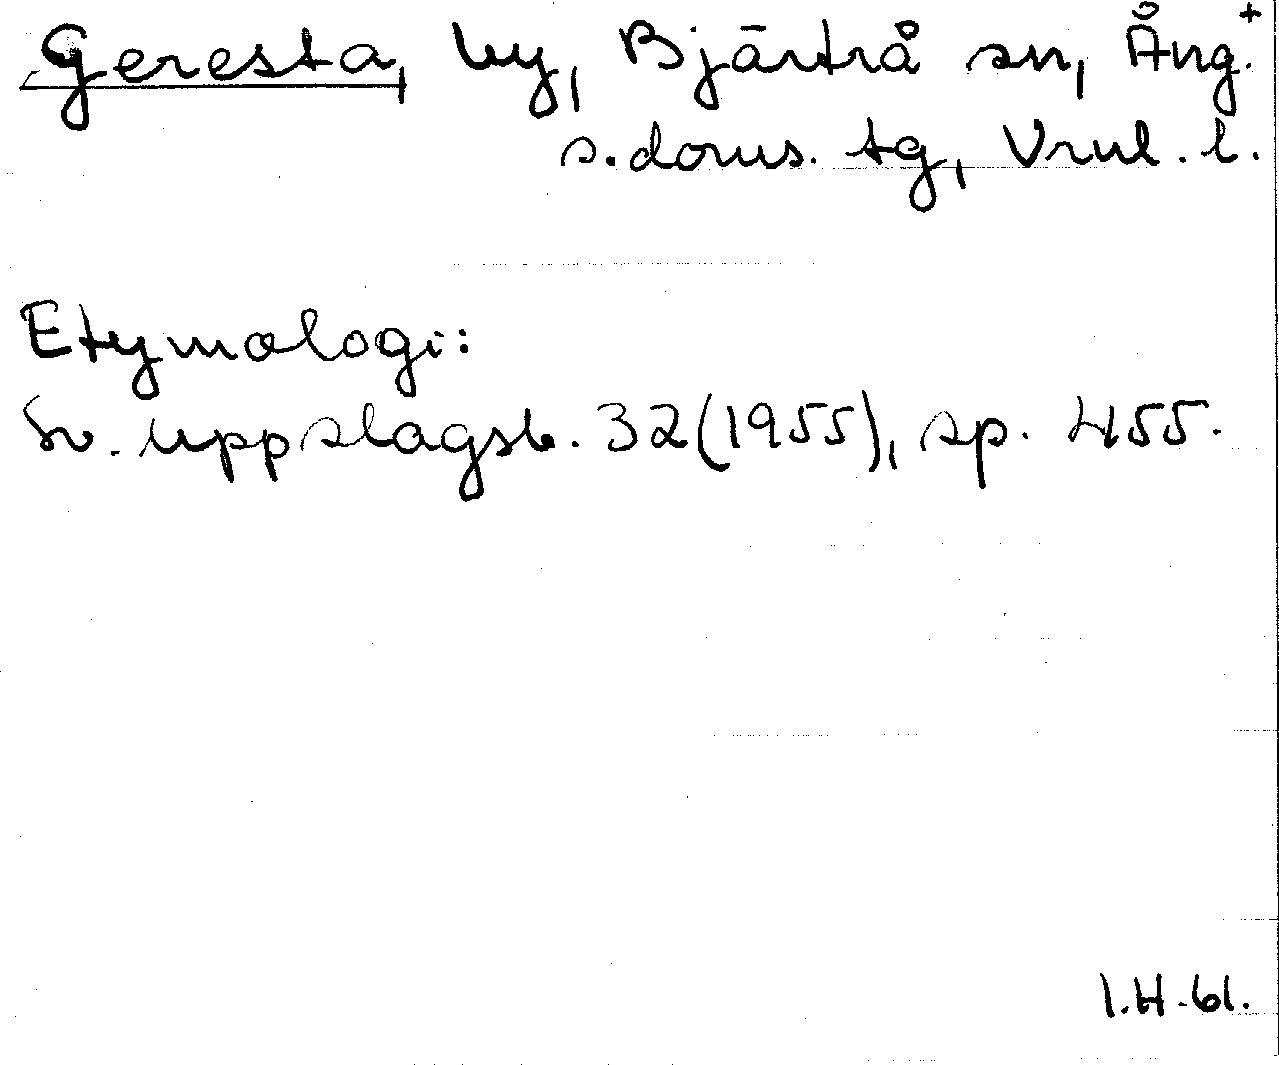 Geresta, by, Bjärtrå sn, Ång.+
s. doms. tg, Vnl. l.
Etymologi:
Sv. uppslagsb. 32 (1955), sp. 455.
I.H. 61.